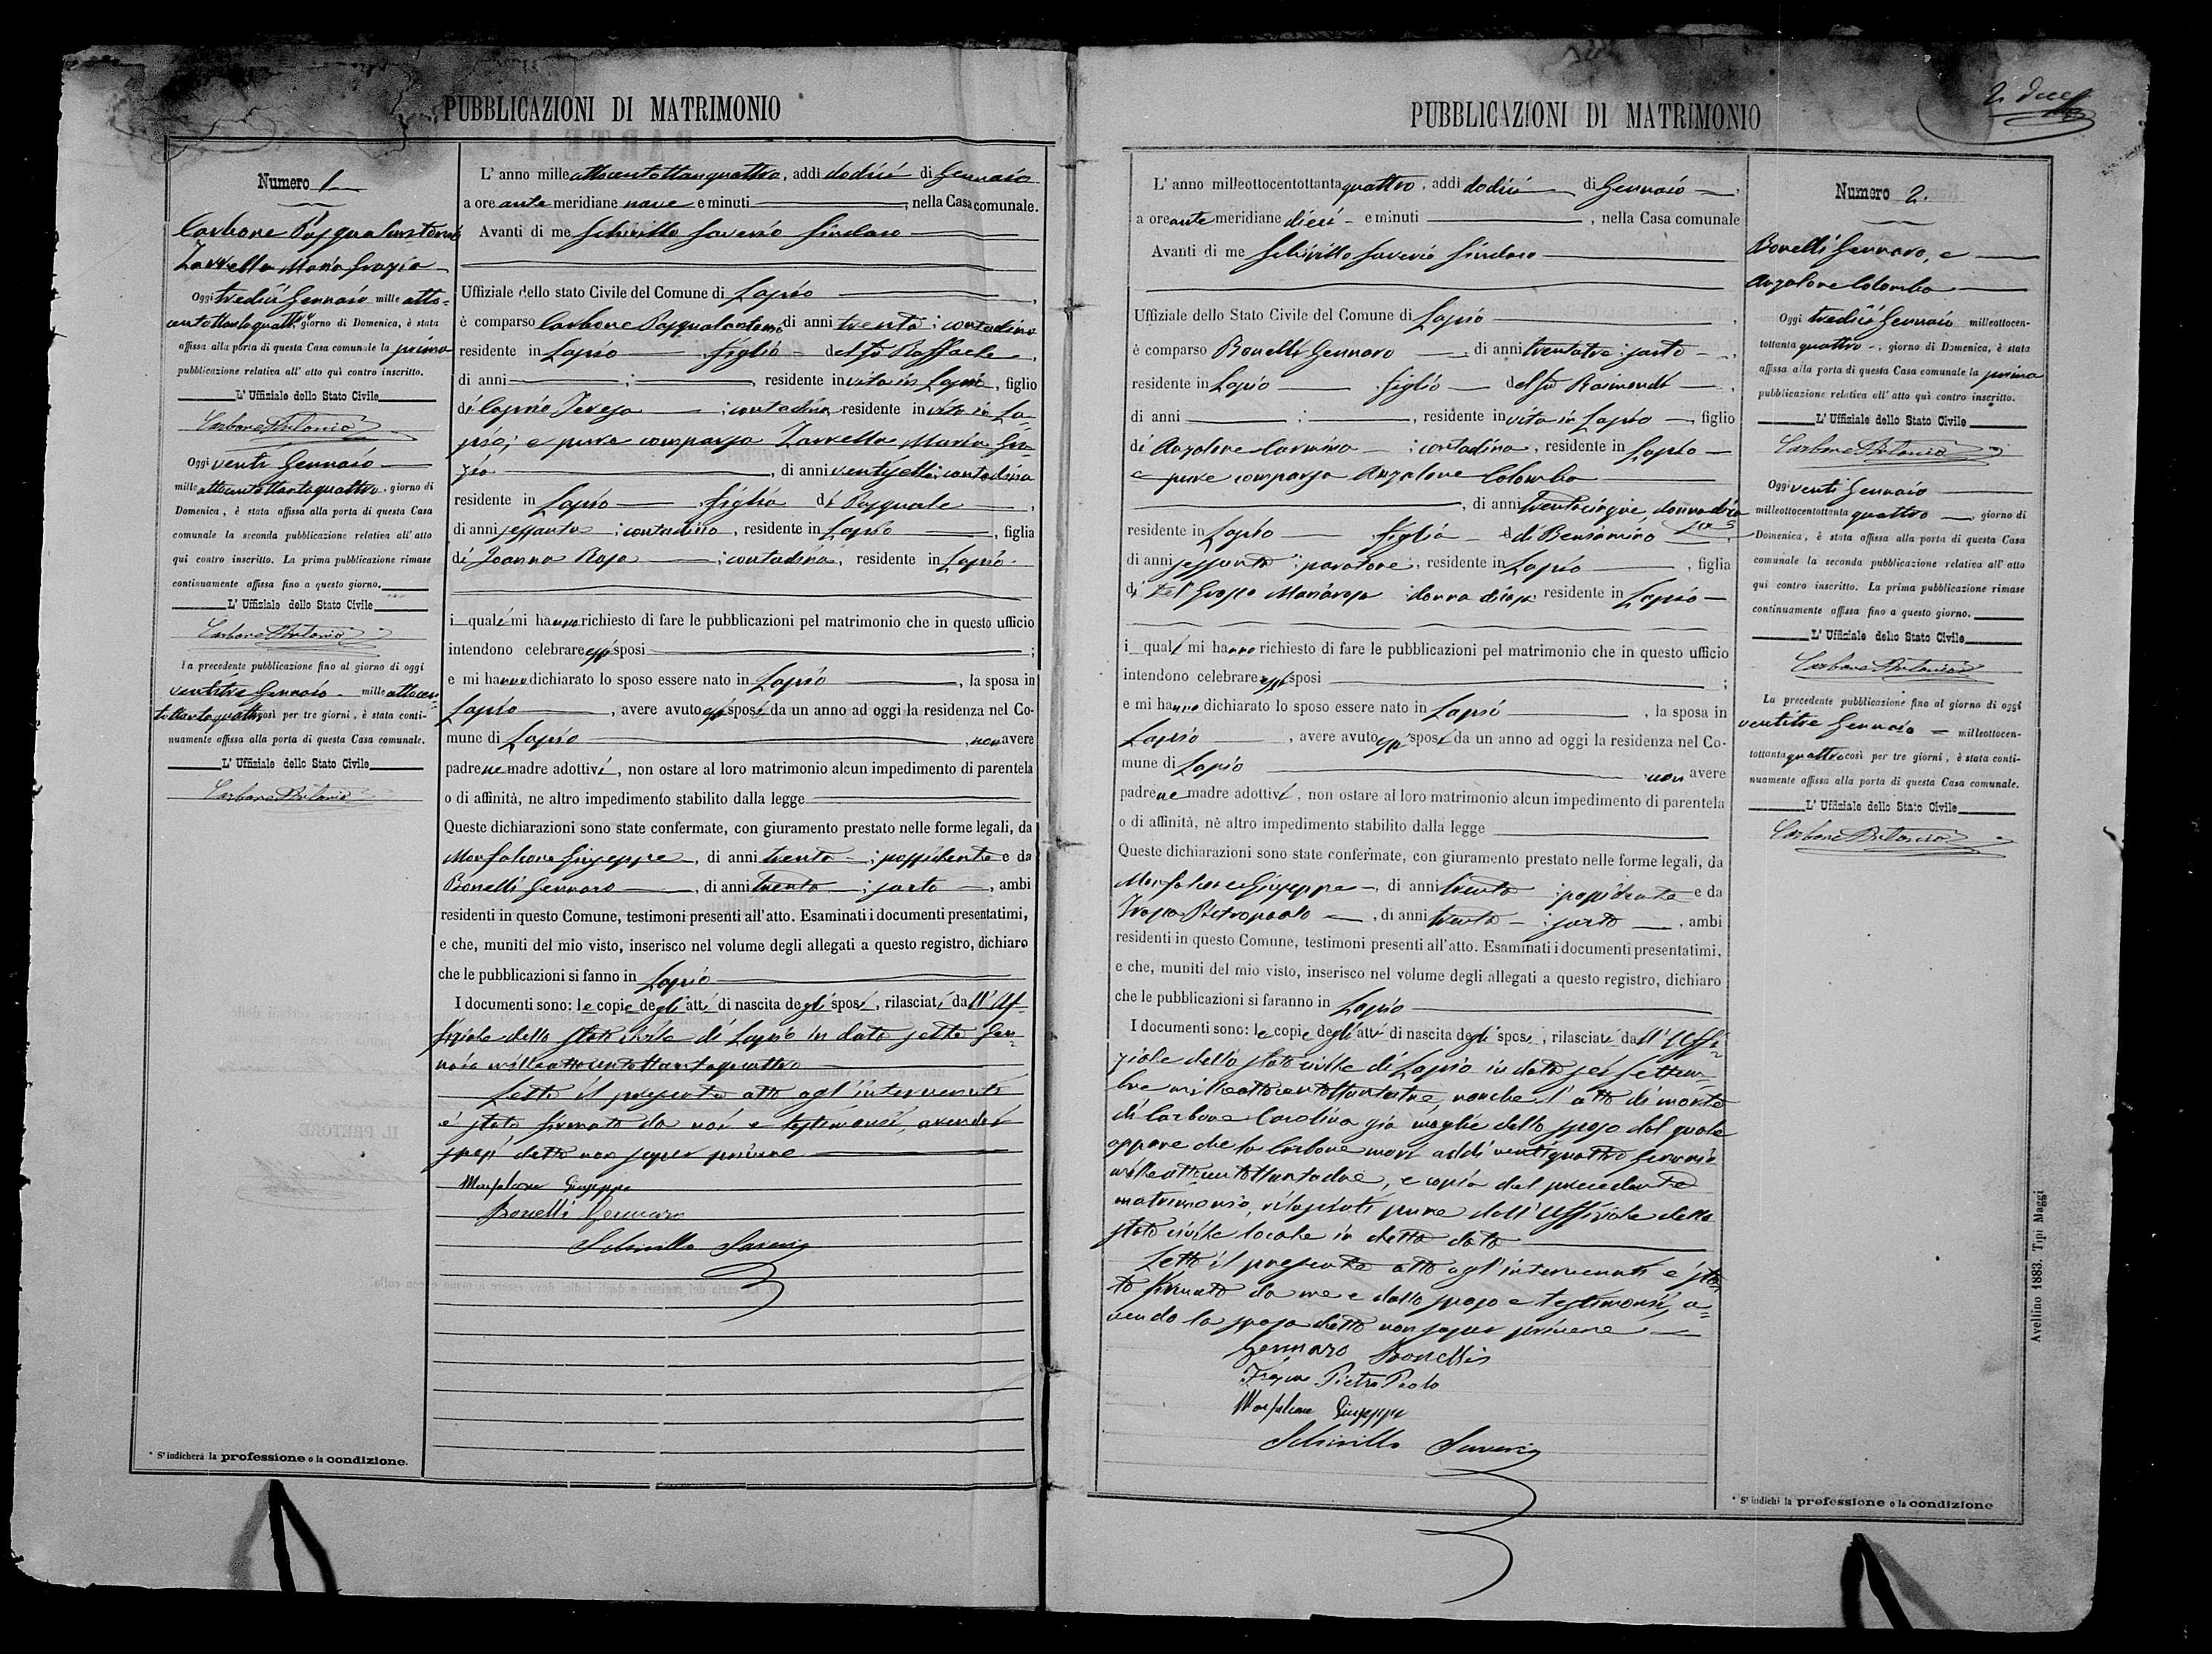 PUBBLICAZIONI DI MATRIMONIO
Numero 1
Carbone Pasqualantonio
Zarrella Maria Grazia
Oggi tredici Gennaio mille otto=
centottantaquattro giorno di Domenica, è stata
affissa alla porta di questa Casa comunale la prima
pubblicazione relativa all' atto quì contro inscritto.
L' Uffiziale dello Stato Civile
Carbone Antonio
Oggi venti Gennaio
mille ottocentottantaquattro, giorno di
Domenica, è stata affissa alla porta di questa Casa
comunale la seconda pubblicazione relativa all' atto
qui contro inscritto. La prima pubblicazione rimase
continuamente affissa fino a questo giorno.
L' Uffiziale dello Stato Civile
Carbone Antonio
La precedente pubblicazione fino al giorno di oggi
ventitre Gennaio mille ottocen
tottantaquattro così per tre giorni, è stata conti-
nuamente affissa alla porta di questa Casa comunale.
L' Uffiziale dello Stato Civile
Carbone Antonio
* Si indicherà la professione o la condizione.
L' anno mille ottocentottanquattro, addì dodici di Gennaio
a ore ante meridiane nove e minuti , nella Casa comunale.
Avanti di me Schirillo Saverio Sindaco
Uffiziale dello stato Civile del Comune di Lapio
è comparso Carbone Pasqualantonio di anni trenta; contadino
residente in Lapio figlio del fu Raffaele
di anni ; , residente in vita in Lapio, figlio
di Caprio Teresa ; contadina residente in vita in La=
pio; e pure comparsa Zarrella Maria Gra=
zia , di anni ventisette; contadina
residente in Lapio figlia di Pasquale ,
di anni sessanta ; contadino, residente in Lapio , figlia
di Joanna Rosa ; contadina, residente in Lapio.
i quali mi hanno richiesto di fare le pubblicazioni pel matrimonio che in questo ufficio
intendono celebrare essi sposi ;
e mi hanno dichiarato lo sposo essere nato in Lapio , la sposa in
Lapio , avere avuto essi sposi da un anno ad oggi la residenza nel Co-
mune di Lapio , non avere
padre ne madre adottivi, non ostare al loro matrimonio alcun impedimento di parentela
o di affinità, ne altro impedimento stabilito dalla legge
Queste dichiarazioni sono state confermate, con giuramento prestato nelle forme legali, da
Monfalcone Giuseppe, di anni trenta ; possidente e da
Bonelli Gennaro , di anni trenta ; sarto , ambi
residenti in questo Comune, testimoni presenti all' atto. Esaminati i documenti presentatimi,
e che, muniti del mio visto, inserisco nel volume degli allegati a questo registro, dichiaro
che le pubblicazioni si fanno in Lapio
I documenti sono: le copie degli atti di nascita degli sposi, rilasciati dall' Uf=
fiziale dello stato Civile di Lapio in data sette Gen=
naio milleottocentottantaquattro
Letto il presente atto agl' intervenuti
è stato firmato da noi e testimonii, avendo i
sposi detto non saper scrivere
Monfalcone Giuseppe
Bonelli Gennaro
Schirillo Saverio
PUBBLICAZIONI DI MATRIMONIO
L' anno milleottocentottantaquattro, addì dodici di Gennaio ,
a ore ante meridiane dieci e minuti , nella Casa comunale
Avanti di me Schirillo Saverio Sindaco
Uffiziale dello Stato Civile del Comune di Lapio ,
è comparso Bonelli Gennaro , di anni trentatre; sarto ,
residente in Lapio , figlio del fu Raimondo ,
di anni ; , residente in vita in Lapio , figlio
di Anzalone Carmina ; contadina, residente in Lapio
e pure comparsa Anzalone Colomba
, di anni trentacinque, donna di ca
sa
residente in Lapio figlia di Beniamino
di anni sessanta; , residente in Lapio , figlia
di Del Grosso Mariarosa ; donna di casa residente in Lapio
i quali mi hanno richiesto di fare le pubblicazioni pel matrimonio che in questo ufficio
intendono celebrare essi sposi ;
e mi hanno dichiarato lo sposo essere nato in Lapio , la sposa in
Lapio , avere avuto essi sposi da un anno ad oggi la residenza nel Co-
mune di Lapio , non avere
padre ne madre adottivi, non ostare al loro matrimonio alcun impedimento di parentela
o di affinità, nè altro impedimento stabilito dalla legge
Queste dichiarazioni sono state confermate, con giuramento prestato nelle forme legali, da
Monfalcone Giuseppe, di anni trenta ; possidente e da
Pietropaolo , di anni trenta ; sarto , ambi
residenti in questo Comune, testimoni presenti all' atto. Esaminati i documenti presentatimi,
e che, muniti del mio visto, inserisco nel volume degli allegati a questo registro, dichiaro
che le pubblicazioni si faranno in Lapio
I documenti sono: le copie degli atti di nascita degli sposi, rilasciati dall' Uffi=
ziale dello stato civile di Lapio in data sei Settem=
bre milleottocentottantatre, nonche l' atto di morte
di Carbone Carolina già moglie dello sposo dal quale
appare che la Carbone morì addì ventiquattro Gennaio
milleottocentottantadue, e copia del precedente
matrimonio, rilasciati pure dall' Uffiziale dello
stato civile locale in detta data
Letto il presente atto agl' intervenuti è sta=
to firmato da me e dallo sposo e testimonii, a=
vendo la sposa detto non saper scrivere
Gennaro Bonelli
Pietro Paolo
Monfalcone Giuseppe
Schirillo Saverio
Numero 2.
Bonelli Gennaro, e
Anzalone Colomba
Oggi tredici Gennaio milleottocen-
tottantaquattro, giorno di Domenica, è stata
affissa alla porta di questa Casa comunale la prima
pubblicazione relativa all' atto quì contro inscritto.
L' Uffiziale dello Stato Civile
Carbone Antonio
Oggi venti Gennaio
milleottocentottanta quattro , giorno di
Domenica, è stata affissa alla porta di questa Casa
comunale la seconda pubblicazione relativa all' atto
qui contro inscritto. La prima pubblicazione rimase
continuamente affissa fino a questo giorno.
L' Uffiziale dello Stato Civile
Carbone Antonio
La precedente pubblicazione fino al giorno di oggi
ventitre Gennaio milleottocen-
tottantaquattro così per tre giorni, è stata conti-
nuamente affissa alla porta di questa Casa comunale.
L' Uffiziale dello Stato Civile
Carbone Antonio
* Si indichi la professione o la condizione
Avellino 1883. Tipi Maggi